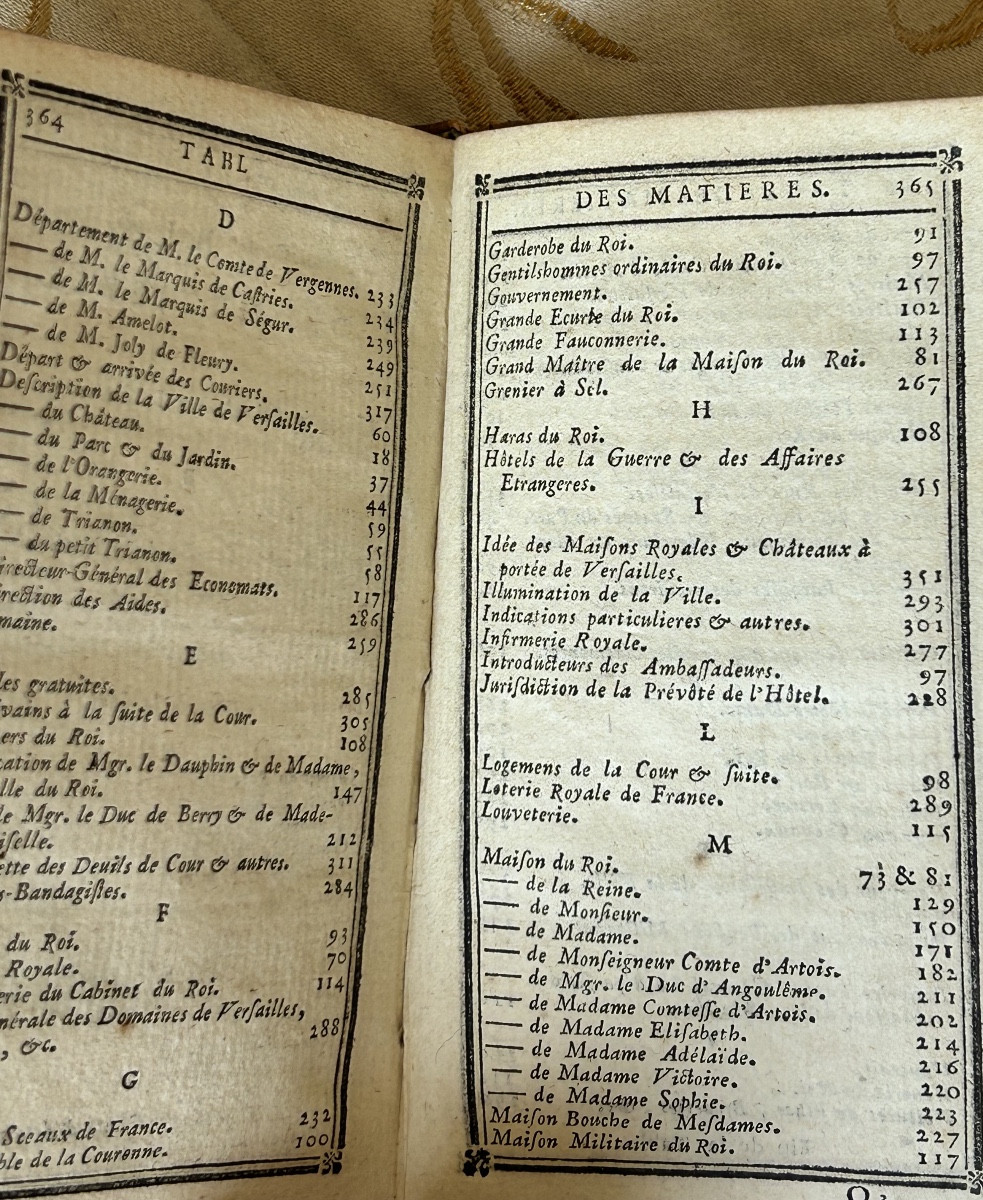 364
TABL
D
Département de M. le Comte de Vergennes. 233
— de M. le Marquis de Caſtries. 234
— de M. le Marquis de Ségur. 239
— de M. Amelot. 249
— de M. Joly de Fleury. 251
Départ & arrivée des Couriers. 317
Deſcription de la Ville de Verſailles. 60
— du Château. 18
— du Parc & du Jardin. 37
— de l'Orangerie. 44
— de la Ménagerie. 59
— de Trianon. 55
— du petit Trianon. 58
irecteur-Général des Economats. 117
rection des Aides. 286
maine. 259
E
les gratuites. 285
vains à la ſuite de la Cour. 305
ers du Roi. 108
cation de Mgr. le Dauphin & de Madame,
lle du Roi. 147
de Mgr. le Duc de Berry & de Made-
iſelle. 212
ette des Deuils de Cour & autres. 311
s-Bandagiſtes. 284
F
du Roi. 93
Royale. 70
erie du Cabinet du Roi. 114
nérale des Domaines de Verſailles,
, &c. 288
G
Sceaux de France. 232
ble de la Couronne. 100
DES MATIERES. 365
Garderobe du Roi. 91
Gentilshommes ordinaires du Roi. 97
Gouvernement. 257
Grande Ecurie du Roi. 102
Grande Fauconnerie. 113
Grand Maître de la Maiſon du Roi. 81
Grenier à Sel. 267
H
Haras du Roi. 108
Hôtels de la Guerre & des Affaires
Etrangeres. 255
I
Idée des Maiſons Royales & Châteaux à
portée de Verſailles. 351
Illumination de la Ville. 293
Indications particulieres & autres. 301
Infirmerie Royale. 277
Introducteurs des Ambaſſadeurs. 97
Juriſdiction de la Prévôté de l'Hôtel. 228
L
Logemens de la Cour & ſuite. 98
Loterie Royale de France. 289
Louveterie. 115
M
Maiſon du Roi. 73 & 81
— de la Reine. 129
— de Monſieur. 150
— de Madame. 171
— de Monſeigneur Comte d'Artois. 182
— de Mgr. le Duc d'Angoulême. 211
— de Madame Comteſſe d'Artois. 202
— de Madame Eliſabeth. 214
— de Madame Adélaïde. 216
— de Madame Victoire. 220
— de Madame Sophie. 223
Maiſon Bouche de Meſdames. 227
Maiſon Militaire du Roi. 117